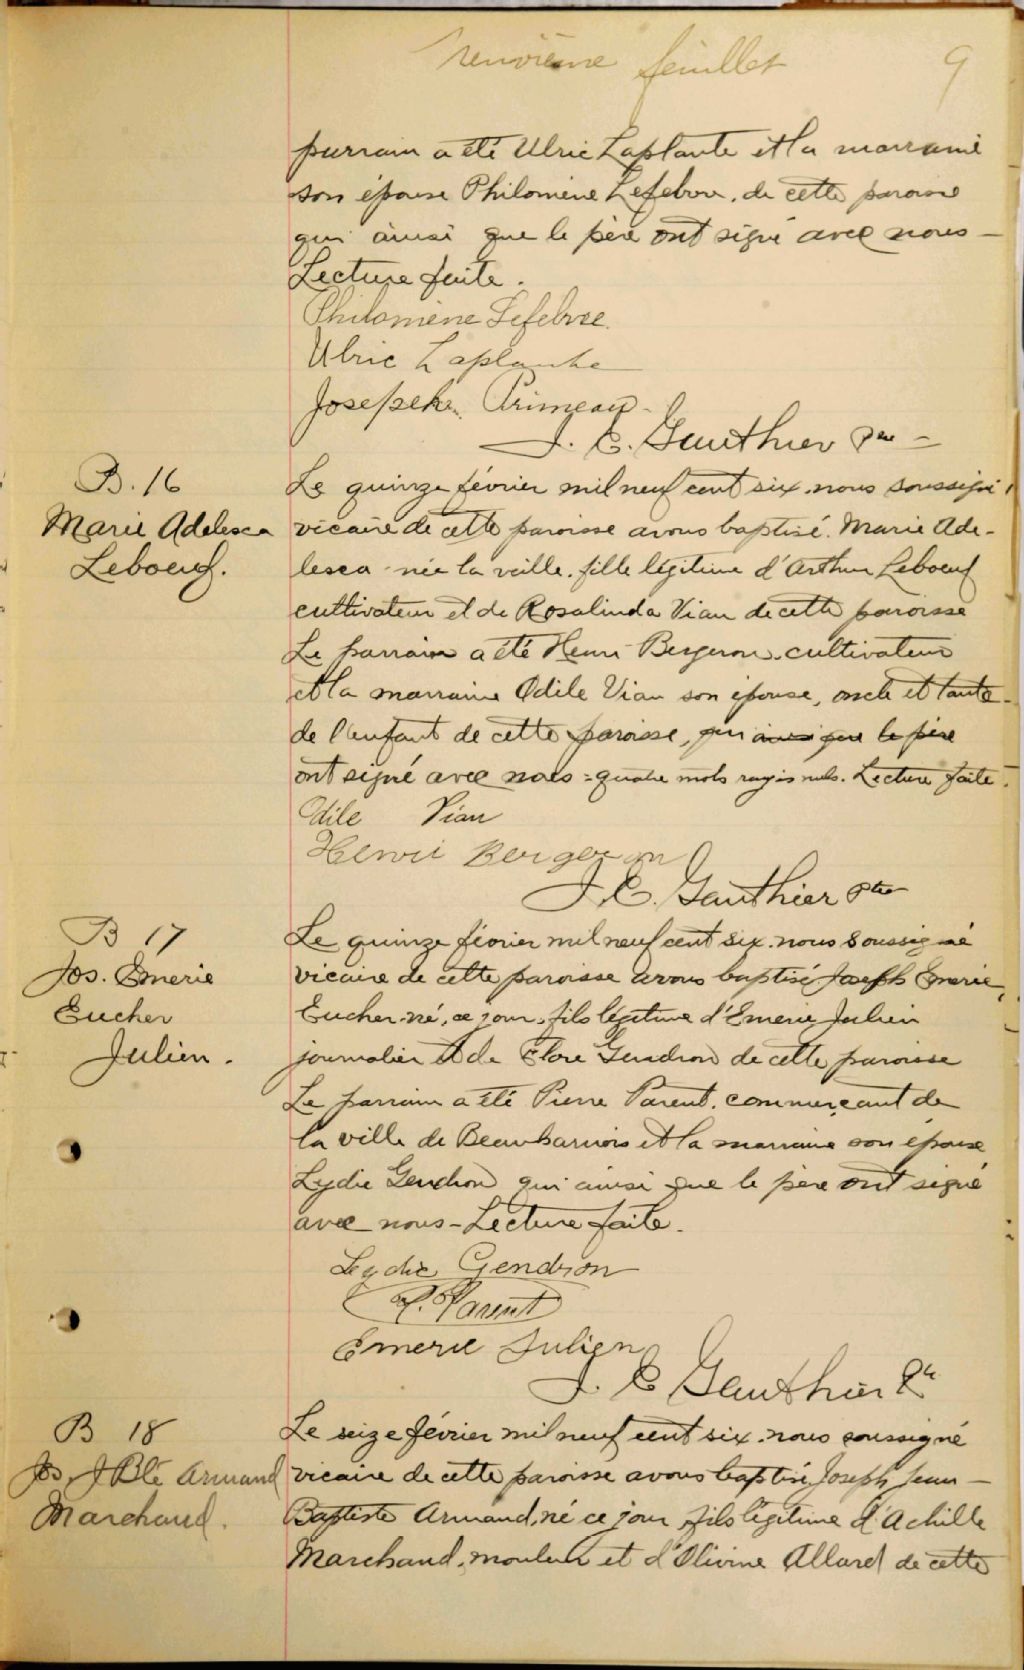 neuvième feuillet 9
parrain a été Ulric Laplante et la marraine
son épouse Philomène Lefebvre, de cette paroisse
qui ainsi que le père ont signé avec nous —
Lecture faite.
Philomène Lefebvre
Ulric Laplante
Josepeh Primeau
J. E. Gauthier Ptre
B. 16
Marie Adelesca
Leboeuf.
Le quinze février mil neuf cent six, nous soussigné
vicaire de cette paroisse avons baptisé. Marie Ade-
lesca née la veille, fille légitime d'Arthur Leboeuf
cultivateur et de Rosalinda Viau de cette paroisse
Le parrain a été Henri Bergeron, cultivateur
et la marraine Odile Viau son épouse, oncle et tante
de l'enfant de cette paroisse, qui ainsi que le père
ont signé avec nous = quatre mots rayés nuls. Lecture faite.
Odile Viau
Henri Bergeron
J. E. Gauthier Ptre
B 17
Jos. Emerie
Eucher
Julien.
Le quinze février mil neuf cent six. nous soussigné
vicaire de cette paroisse avons baptisé Joseph Emerie,
Eucher, né, ce jour, fils légitime d'Emerie Julien
journalier et de Flore Gendron de cette paroisse
Le parrain a été Pierre Parent, commerçant de
la ville de Beauharnois et la marraine son épouse
Lydie Gendron qui ainsi que le père ont signé
avec nous - Lecture faite.
Lydie Gendron
P. Parent
Emerie Julien
J. E. Gauthier Ptr
B 18
Jos. J. Bte Armand
Marchand.
Le seize février mil neuf cent six. nous soussigné
vicaire de cette paroisse avons baptisé Joseph Jean —
Baptiste Armand, né ce jour fils légitime d'Achille
Marchand, mouleur et d'Olivine Allard de cette